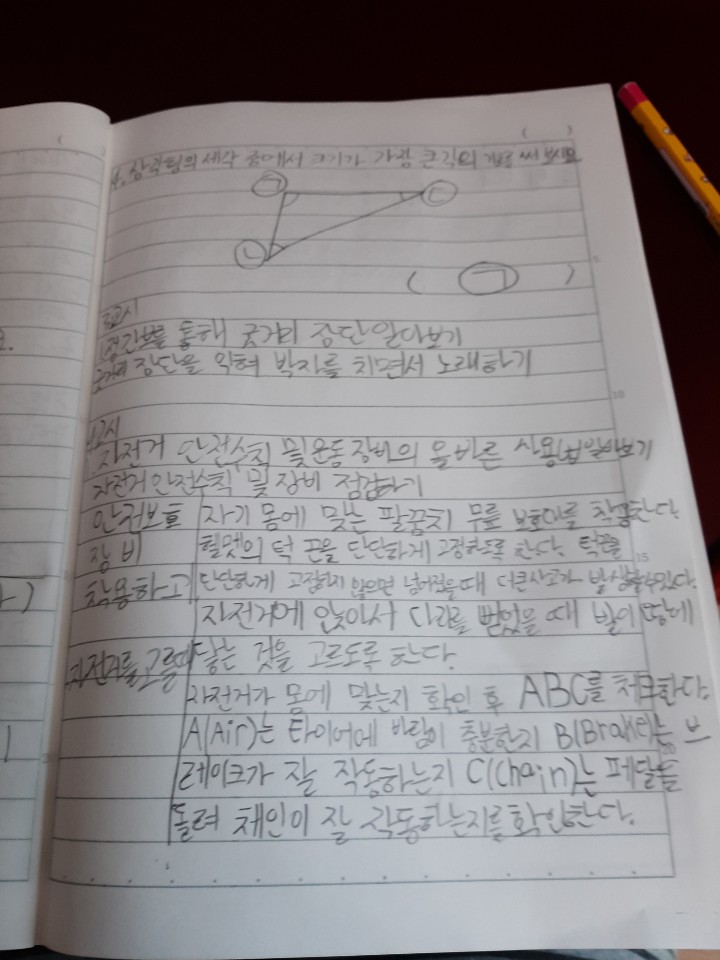 ( )
4. 삼각형의 세각 중에서 크기가 가장 큰각의 기호를 써 보시오
ㄱ ㄷ
ㄴ
( ㄱ )
교시
정간보를 통해 굿거리 장단알아보기
굿거리 장단을 익혀 박자를 치면서 노래하기
교시
자전거 안전수칙 및 운동장비의 올바른 사용법알아보기
자전거 안전수칙 및 장비 점검하기
안전보호 자기 몸에 맞는 팔꿈치 무릎 보호대를 착용한다.
장비 헬멧의 턱 끈을 단단하게 고정하도록 한다. 턱끈을
착용하고 단단하게 고정하지 않으면 넘어졌을때 더큰사고가 발생할수있다.
자전거에 앉아서 다리를 뻗었을 때 발이 땅에
자전거를 고를때 닿는 것을 고르도록 한다.
자전거가 몸에 맞는지 확인 후 ABC를 체크한다.
A(Air)는 타이어에 바람이 충분한지 B(Brake)는 브
레이크가 잘 작동하는지 C(Chain)는 페달을
돌려 체인이 잘 작동하는지를 확인한다.